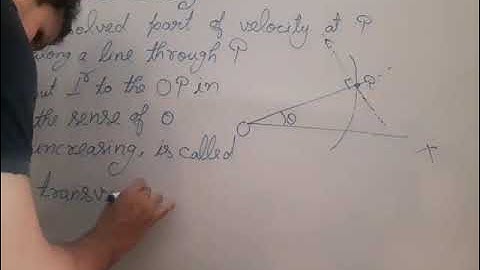 solved part of velocity at P
along a line through P
but ⊥r to the OP in
the sense of θ
increasing, is called
transv
P
θ
O
X